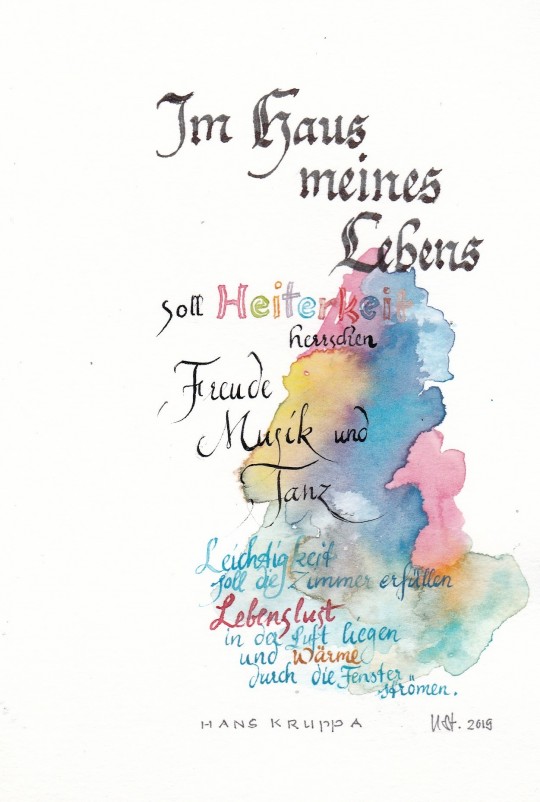 Im Haus
meines
Lebens
soll Heiterkeit
herrschen
Freude
Musik und
Tanz
Leichtigkeit
soll die Zimmer erfüllen
Lebenslust
in der Luft liegen
und Wärme
durch die Fenster
strömen.
HANS KRUPPA
2019